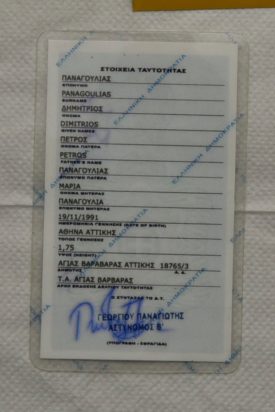 ΣΤΟΙΧΕΙΑ ΤΑΥΤΟΤΗΤΑΣ
ΠΑΝΑΓΟΥΛΙΑΣ
ΕΠΩΝΥΜΟ
PANAGOULIAS
SURNAME
ΔΗΜΗΤΡΙΟΣ
ΟΝΟΜΑ
DIMITRIOS
GIVEN NAMES
ΠΕΤΡΟΣ
ΟΝΟΜΑ ΠΑΤΕΡΑ
PETROS
FATHER'S NAME
ΠΑΝΑΓΟΥΛΙΑΣ
ΕΠΩΝΥΜΟ ΠΑΤΕΡΑ
ΜΑΡΙΑ
ΟΝΟΜΑ ΜΗΤΕΡΑΣ
ΠΑΝΑΓΟΥΛΙΑ
ΕΠΩΝΥΜΟ ΜΗΤΕΡΑΣ
19/11/1991
ΗΜΕΡΟΜΗΝΙΑ ΓΕΝΝΗΣΗΣ (DATE OF BIRTH)
ΑΘΗΝΑ ΑΤΤΙΚΗΣ
ΤΟΠΟΣ ΓΕΝΝΗΣΗΣ
1,75
ΥΨΟΣ (HEIGHT)
ΑΓΙΑΣ ΒΑΡΑΒΑΡΑΣ ΑΤΤΙΚΗΣ 18765/3
ΔΗΜΟΤΗΣ
Τ.Α. ΑΓΙΑΣ ΒΑΡΒΑΡΑΣ
ΑΡΧΗ ΕΚΔΟΣΗΣ ΔΕΛΤΙΟΥ ΤΑΥΤΟΤΗΤΑΣ
Ο ΣΥΝΤΑΞΑΣ ΤΟ Δ.Τ.
ΓΕΩΡΓΙΟΥ ΠΑΝΑΓΙΩΤΗΣ
ΑΣΤΥΝΟΜΟΣ Β'
(ΥΠΟΓΡΑΦΗ - ΣΦΡΑΓΙΔΑ)
ΕΛΛΗΝΙΚΗ ΔΗΜΟΚΡΑΤΙΑ